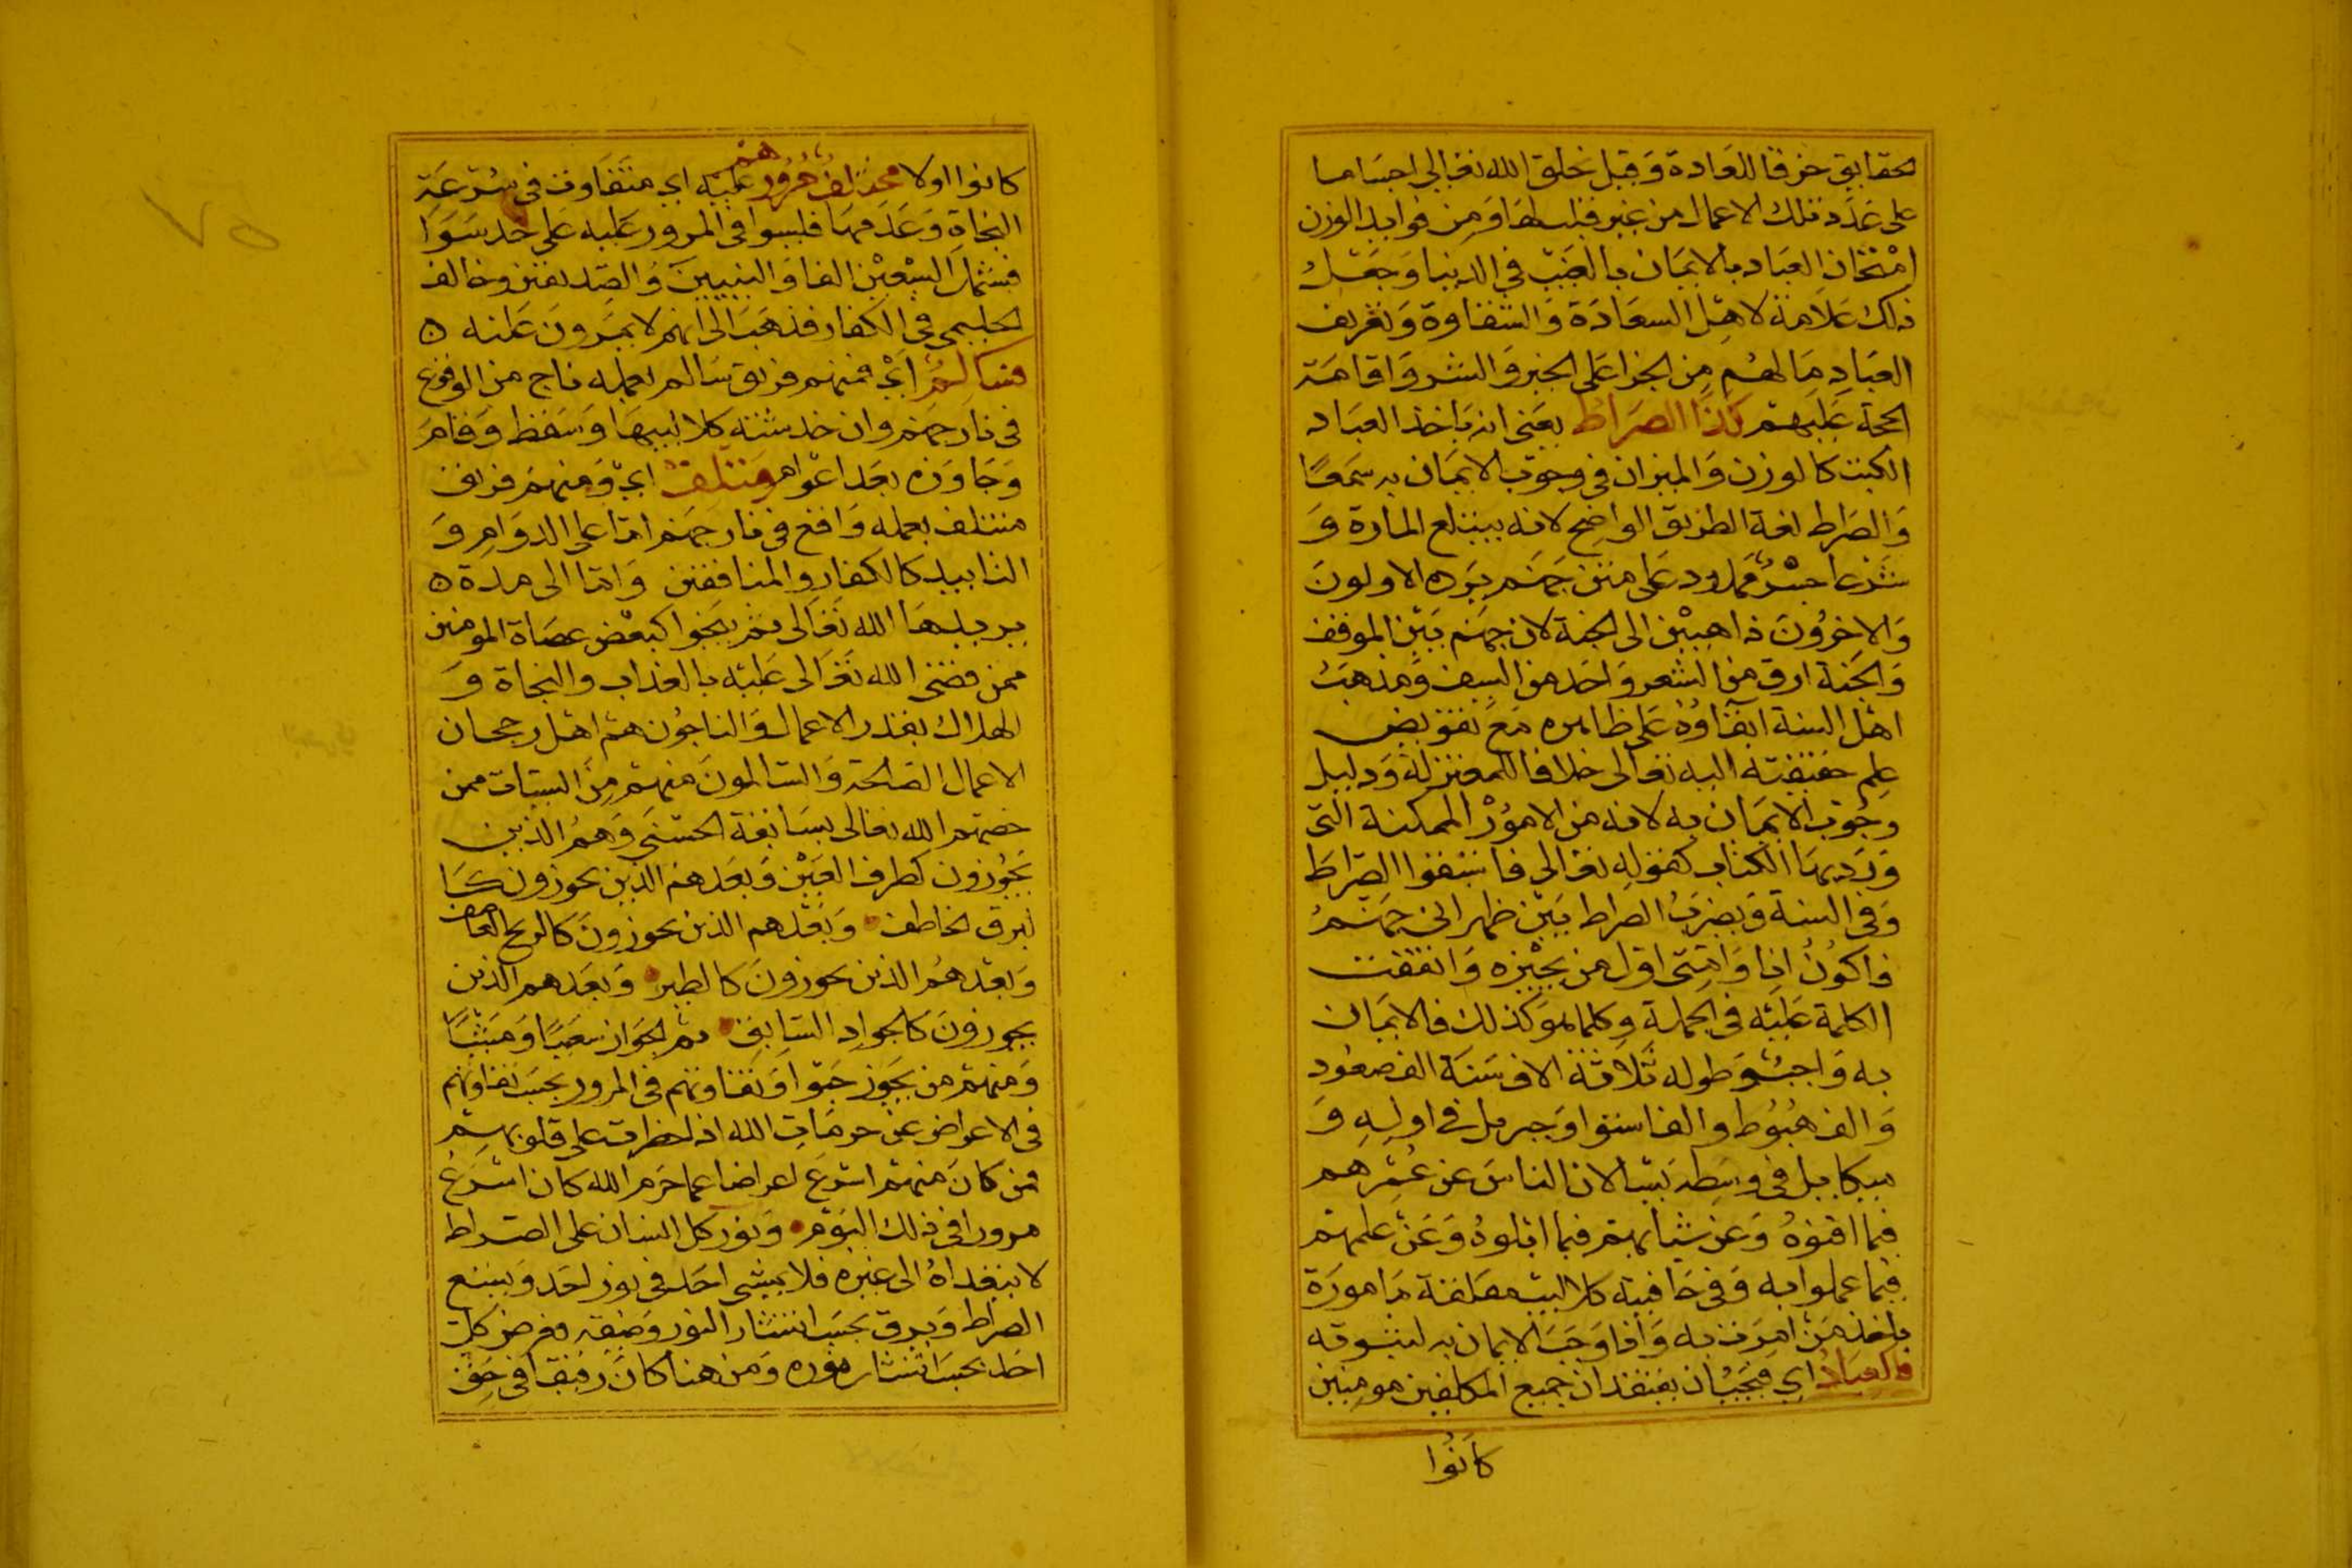 الحقايق خرقا للعادة وقيل يخلق الله تعالى اجساما
على عدد تلك الاعمال من غير قلب لها ومن فوايد الوزن
امتحان العباد بالايمان بالغيب في الدنيا وجعل
ذلك علامة لاهل السعادة والشقاوة وتعريف
العباد ما لهم من الجزا على الخير والشر واقامة
الحجة عليهم كذا الصراط يعني انه باخذ العباد
الكتب كالوزن والميزان في وجوب الايمان به سمعا
والصراط لغة الطريق الواضح لانه يبتلع المارة و
شرعا جسر ممدود على متن جهنم يرده الاولون
والاخرون ذاهبين الى الجنة لان جهنم بين الموقف
والجنة ارق من الشعر واحد من السيف ومذهب
اهل السنة ابقاؤه على ظاهره مع تفويض
علم حقيقته اليه تعالى خلافا للمعتزلة ودليل
وجوب الايمان به لانه من الامور الممكنة التي
ورد بها الكتاب كقوله تعالى فاستبقوا الصراط
وفي السنة ويضرب الصراط بين ظهراني جهنم
فاكون انا وامتي اول من يجيزه واتفقت
الكلمة عليه في الجملة وكلما هو كذلك فالايمان
به واجب وطوله ثلاثة الاف سنة الف صعود
والف هبوط والف استوا وجبريل في اوله و
ميكاييل في وسطه يسالان الناس عن عمرهم
فيما افنوه وعن شبابهم فيما ابلوه وعن علمهم
فيما عملوا به وفي حافتيه كلاليب معلقة مامورة
باخذ من امرت به واذا وجب الايمان به لثبوته
فالعباد اي فيجب ان يعتقد ان جميع المكلفين مومنين
كانوا
كانوا اولا مختلف مرورهم عليه اي متفاوت في سرعة
النجاة وعدمها فليسوا في المرور عليه على حد سوا
فشمل السبعين الفا والنبيين والصديقين وخالف
الحليمي في الكفار فذهب الى انهم لا يمرون عليه ه
فسالم اي فمنهم فريق سالم بعمله ناج من الوقوع
في نار جهنم وان خدشته كلاليبها وسقط وقام
وجاوزه بعد اعوام ومنتلف اي ومنهم فريق
منتلف بعمله واقع في نار جهنم اما على الدوام و
التابيد كالكفار والمنافقين واما الى مدة ه
يريدها الله تعالى ثم ينجوا كبعض عصاة المومنين
ممن قضى الله تعالى عليه بالعذاب والنجاة و
الهلاك بقدر الاعمال والناجون هم اهل رجحان
الاعمال الصالحة والسالمون منهم من السيات ممن
خصهم الله تعالى بسابقة الحسنى وهم الذين
يجوزون كطرف العين وبعدهم الذين يجوزون كا
لبرق الخاطف وبعدهم الذين يجوزون كالريح العاصف
وبعدهم الذين يجوزون كالطير وبعدهم الذين
يجوزون كالجواد السابق ثم الجواز سعيا ومشيا
ومنهم من يجوز حبوا وتفاوتهم في المرور بحسب تفاوتهم
في الاعراض عن حرمات الله اذا خطرت على قلوبهم
فمن كان منهم اسرع اعراضا عما حرم الله كان اسرع
مرورا في ذلك اليوم ونور كل انسان على الصراط
لا يتعداه الى غيره فلا يمشي احد في نور احد ويتسع
الصراط ويدق بحسب انتشار النور وضيقه فعرض كل
احد بحسب انتشار نوره ومن هنا كان دقيقا في حق